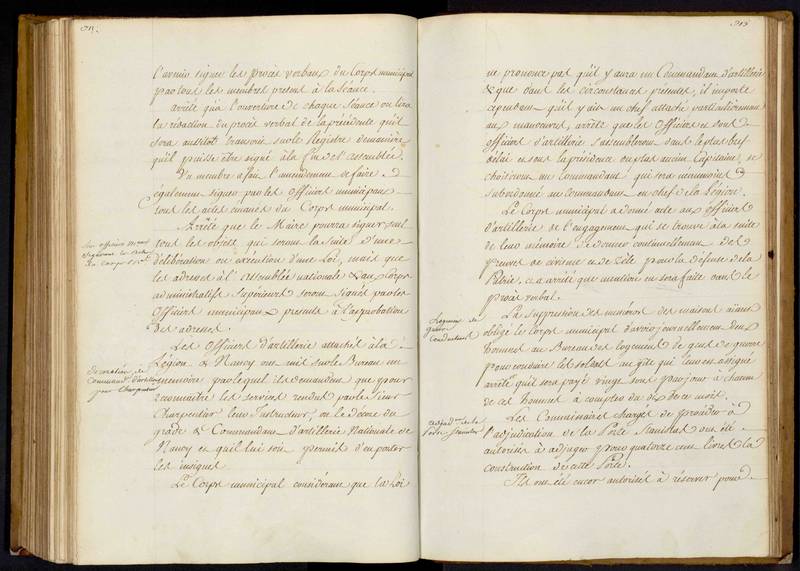 l'avenir signer les procès verbaux du Corps municipal
par tous les membres présent à la séance.
arrêté qu'à l'ouverture de chaque séance on lira
la rédaction du procès verbal de la précédente qu'il
sera aussitôt transcrit sur le Registre de manière
qu'il puisse être signé à la fin de l'assemblée.
Un membre a fait l'amendement de faire
également signer par les officiers municipaux
tous les actes émanés du Corps municipal.
Arrêté que le Maire pourra signer seul
tous les objets qui seront la suite d'une
délibération ou exécution d'une Loi, mais que
les adresses à l'assemblée nationale & aux Corps
administratifs supérieurs seront signés par les
officiers municipaux présents à l'approbation
des adresses.
Les officiers d'artillerie attachés à la
Légion de Nancy ont mis sur le Bureau un
mémoire par lequel ils demandent que pour
reconnaitre les services rendus par le sieur
Charpentier leur Instructeur, on le décore du
grade de Commandant d'artillerie Nationale de
Nancy et qu'il lui soit permit d'en porter
les insignes.
Le Corps municipal considérant que la Loi
Les officiers
du Corps
commandt d'artillerie
pour Charpentier
315
ne prononce pas qu'il y aura un Commandant d'artillerie
& que dans les circonstances présentes, il importe
cependant qu'il y ait un chef attaché particulièrement
aux manoeuvres, arrête que les officiers et sous
officiers d'artillerie s'assembleront dans le plus bref
délai et sous la présidence du plus ancien Capitaine, se
choisiront un Commandant qui sera néanmoins
subordonné au commandant en chef de la Légion.
Le Corps municipal a donné acte aux officiers
d'artillerie de l'engagement qui se trouve à la suite
de leur mémoire de donner continuellement des
preuves de civisme et de zèle pour la défense de la
Patrie, et a arrêté que mention en sera faite dans le
procès verbal.
La suppression des numéros des maisons aiant
obligé le corps municipal d'avoir journellement deux
hommes au Bureau des logement de gens de guerre
pour conduire les soldats au gîte qui leur est assigné
arrêté qu'il sera payé vingt sous par jour à chacun
de ces hommes à compter du 1er de ce mois.
Les Commissaires chargés de procéder à
l'adjudication de la Porte Stanislas ont été
autorisés à adjuger pour quatorze cent livres la
construction de cette Porte.
Ils ont été encor autorisés à réserver pour
Logement de
guerre
Conducteurs
de la
Porte Stanislas